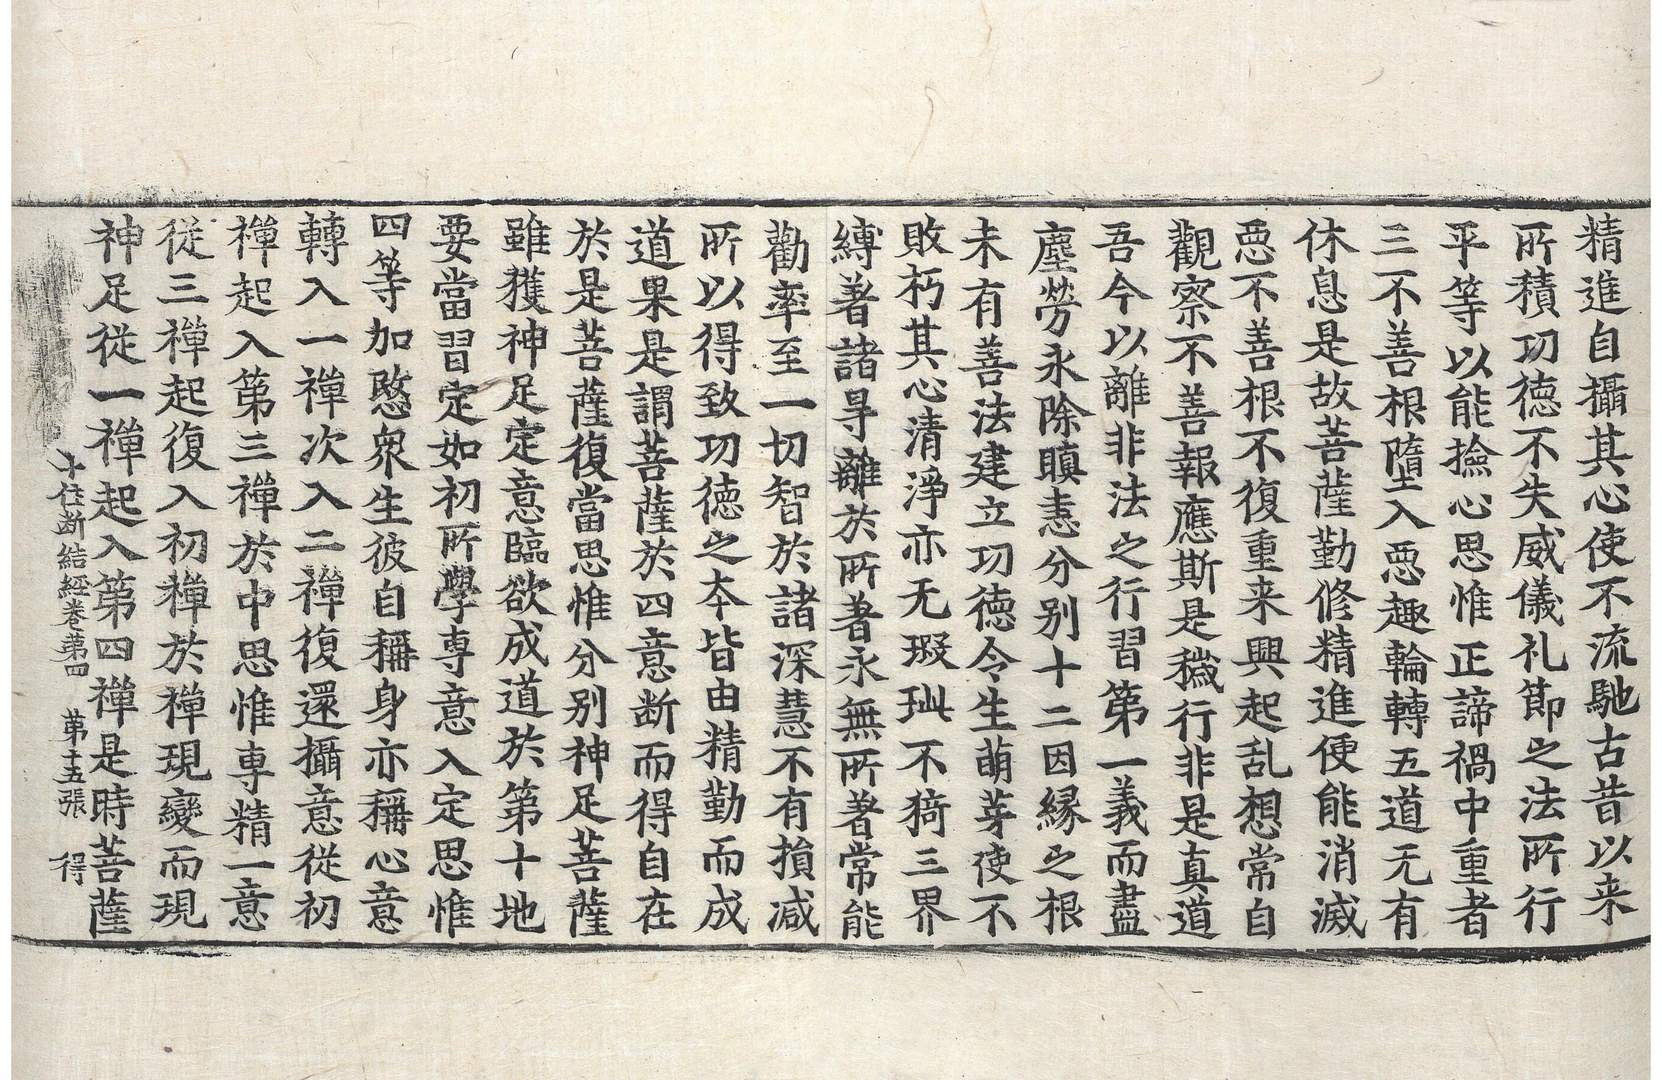 精進自攝其心使不流馳古昔以来
所積功德不失威儀礼節之法所行
平等以能撿心思惟正諦禍中重者
三不善根墮入惡趣輪轉五道无有
休息是故菩薩勤修精進便能消滅
惡不善根不復重来興起乱想常自
觀察不善報應斯是穢行非是真道
吾今以離非法之行習第一義而盡
塵勞永除瞋恚分別十二因縁之根
未有善法建立功德令生萌芽使不
敗朽其心清淨亦无瑕玼不猗三界
縛著諸㝵離於所著永無所著常能
勸率至一切智於諸深慧不有損減
所以得致功德之本皆由精勤而成
道果是謂菩薩於四意断而得自在
於是菩薩復當思惟分別神足菩薩
雖獲神足定意臨欲成道於第十地
要當習定如初所學專意入定思惟
四等加愍衆生彼自稱身亦稱心意
轉入一禪次入二禪復還攝意從初
禪起入第三禪於中思惟專精一意
從三禪起復入初禪於禪現變而現
神足從一禪起入第四禪是時菩薩
十住断結經卷第四 第十五張 得